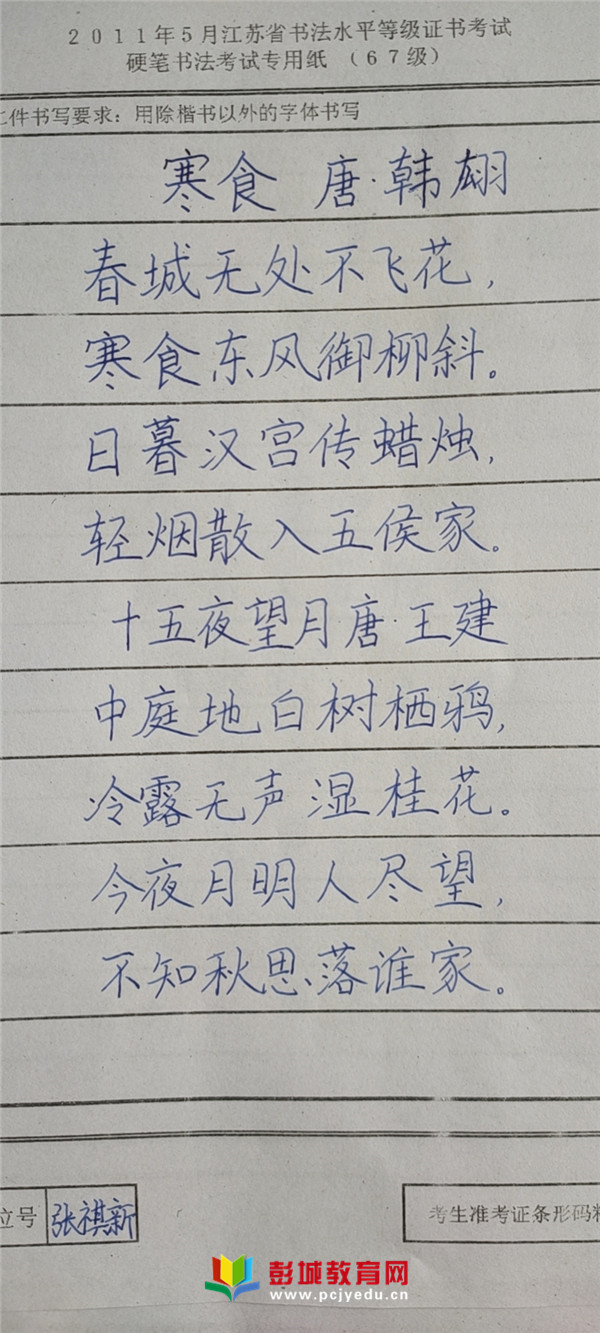 2011年5月江苏省书法水平等级证书考试
硬笔书法考试专用纸 （67级）
二件书写要求：用除楷书以外的字体书写
寒食 唐·韩翃
春城无处不飞花，
寒食东风御柳斜。
日暮汉宫传蜡烛，
轻烟散入五侯家。
十五夜望月 唐·王建
中庭地白树栖鸦，
冷露无声湿桂花。
今夜月明人尽望，
不知秋思落谁家。
位号 张祺新
考生准考证条形码粘
彭城教育网
www.pcjyedu.cn